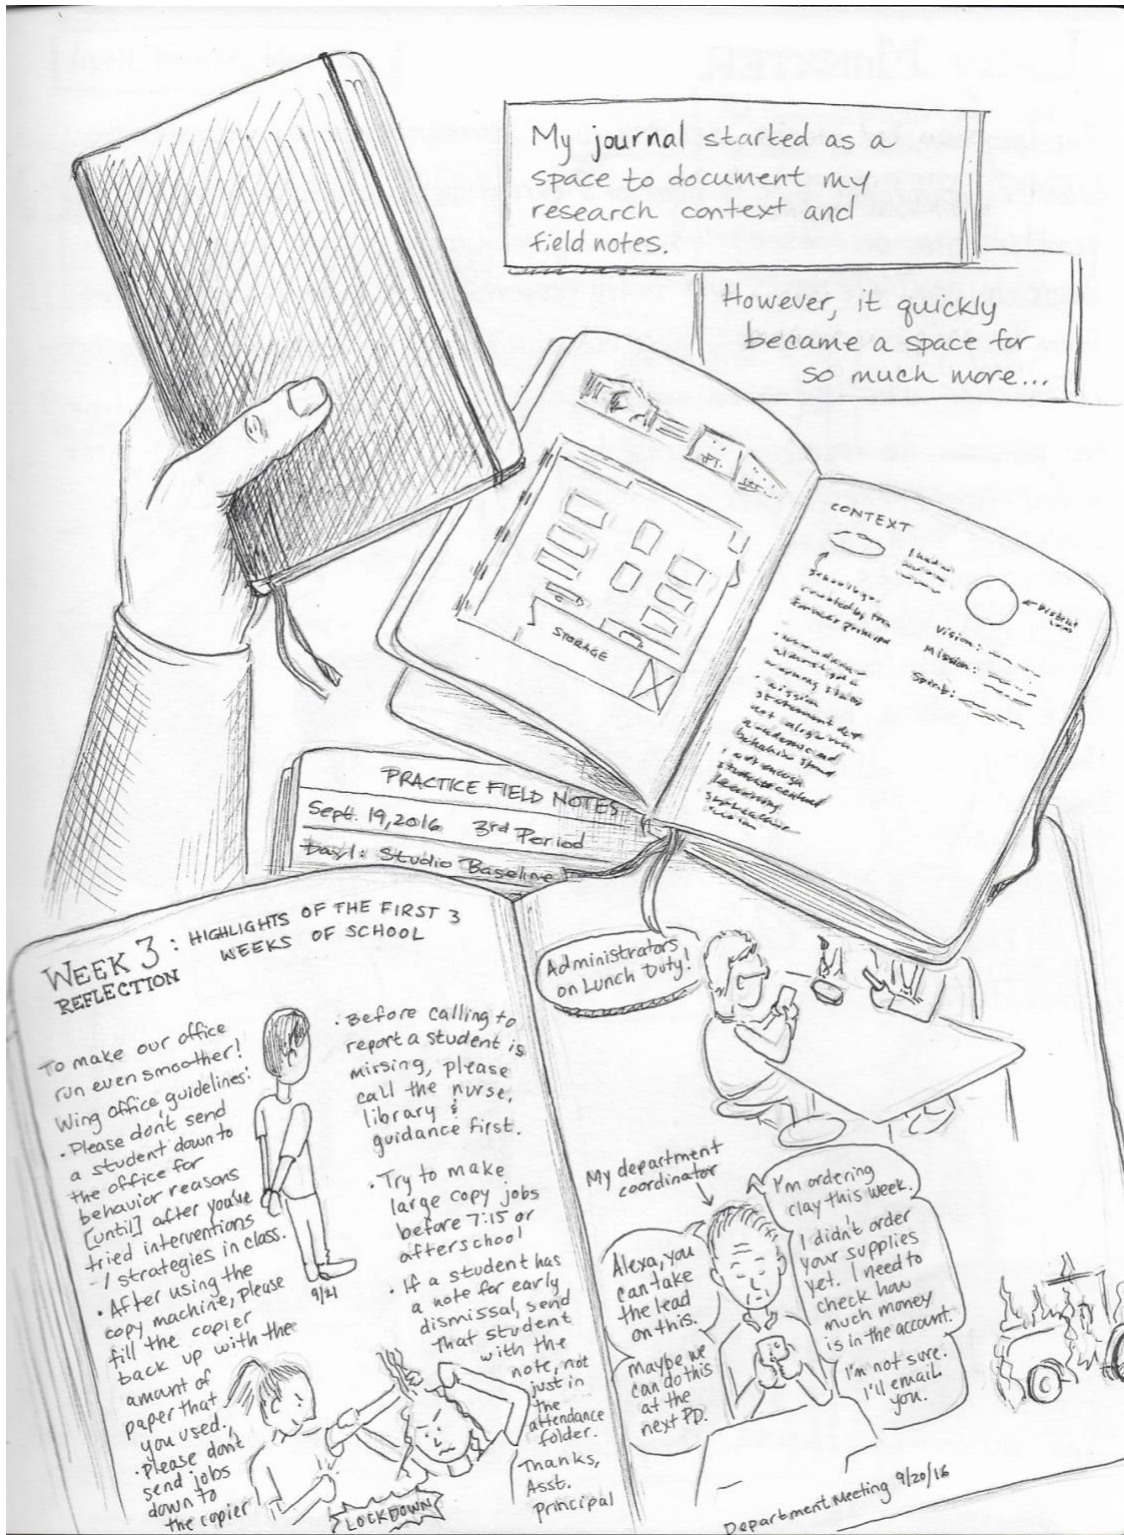 My journal started as a
space to document my
research context and
field notes.
However, it quickly
became a space for
so much more...
STORAGE
CONTEXT
former principal
Vision:
Mission:
Spirit:
PRACTICE FIELD NOTES
Sept. 19, 2016 3rd Period
Day 1: Studio Baseline
WEEK 3: HIGHLIGHTS OF THE FIRST 3
WEEKS OF SCHOOL
REFLECTION
To make our office
run even smoother!
Wing office guidelines:
• Please don't send
a student down to
the office for
behavior reasons
[until] after you've
tried interventions
/ strategies in class.
• After using the
copy machine, please
fill the copier
back up with the
amount of
paper that
you used.
• Please don't
send jobs
down to
the copier
9/21
• Before calling to
report a student is
missing, please
call the nurse,
library &
guidance first.
• Try to make
large copy jobs
before 7:15 or
afterschool
• If a student has
a note for early
dismissal, send
that student
with the
note, not
just in
the
attendance
folder.
Thanks,
Asst.
Principal
LOCKDOWN
Administrators
on Lunch Duty!
My department
coordinator
Alexa, you
can take
the lead
on this.
Maybe we
can do this
at the
next PD.
I'm ordering
clay this week.
I didn't order
your supplies
yet. I need to
check how
much money
is in the account.
I'm not sure.
I'll email
you.
Department Meeting 9/20/16